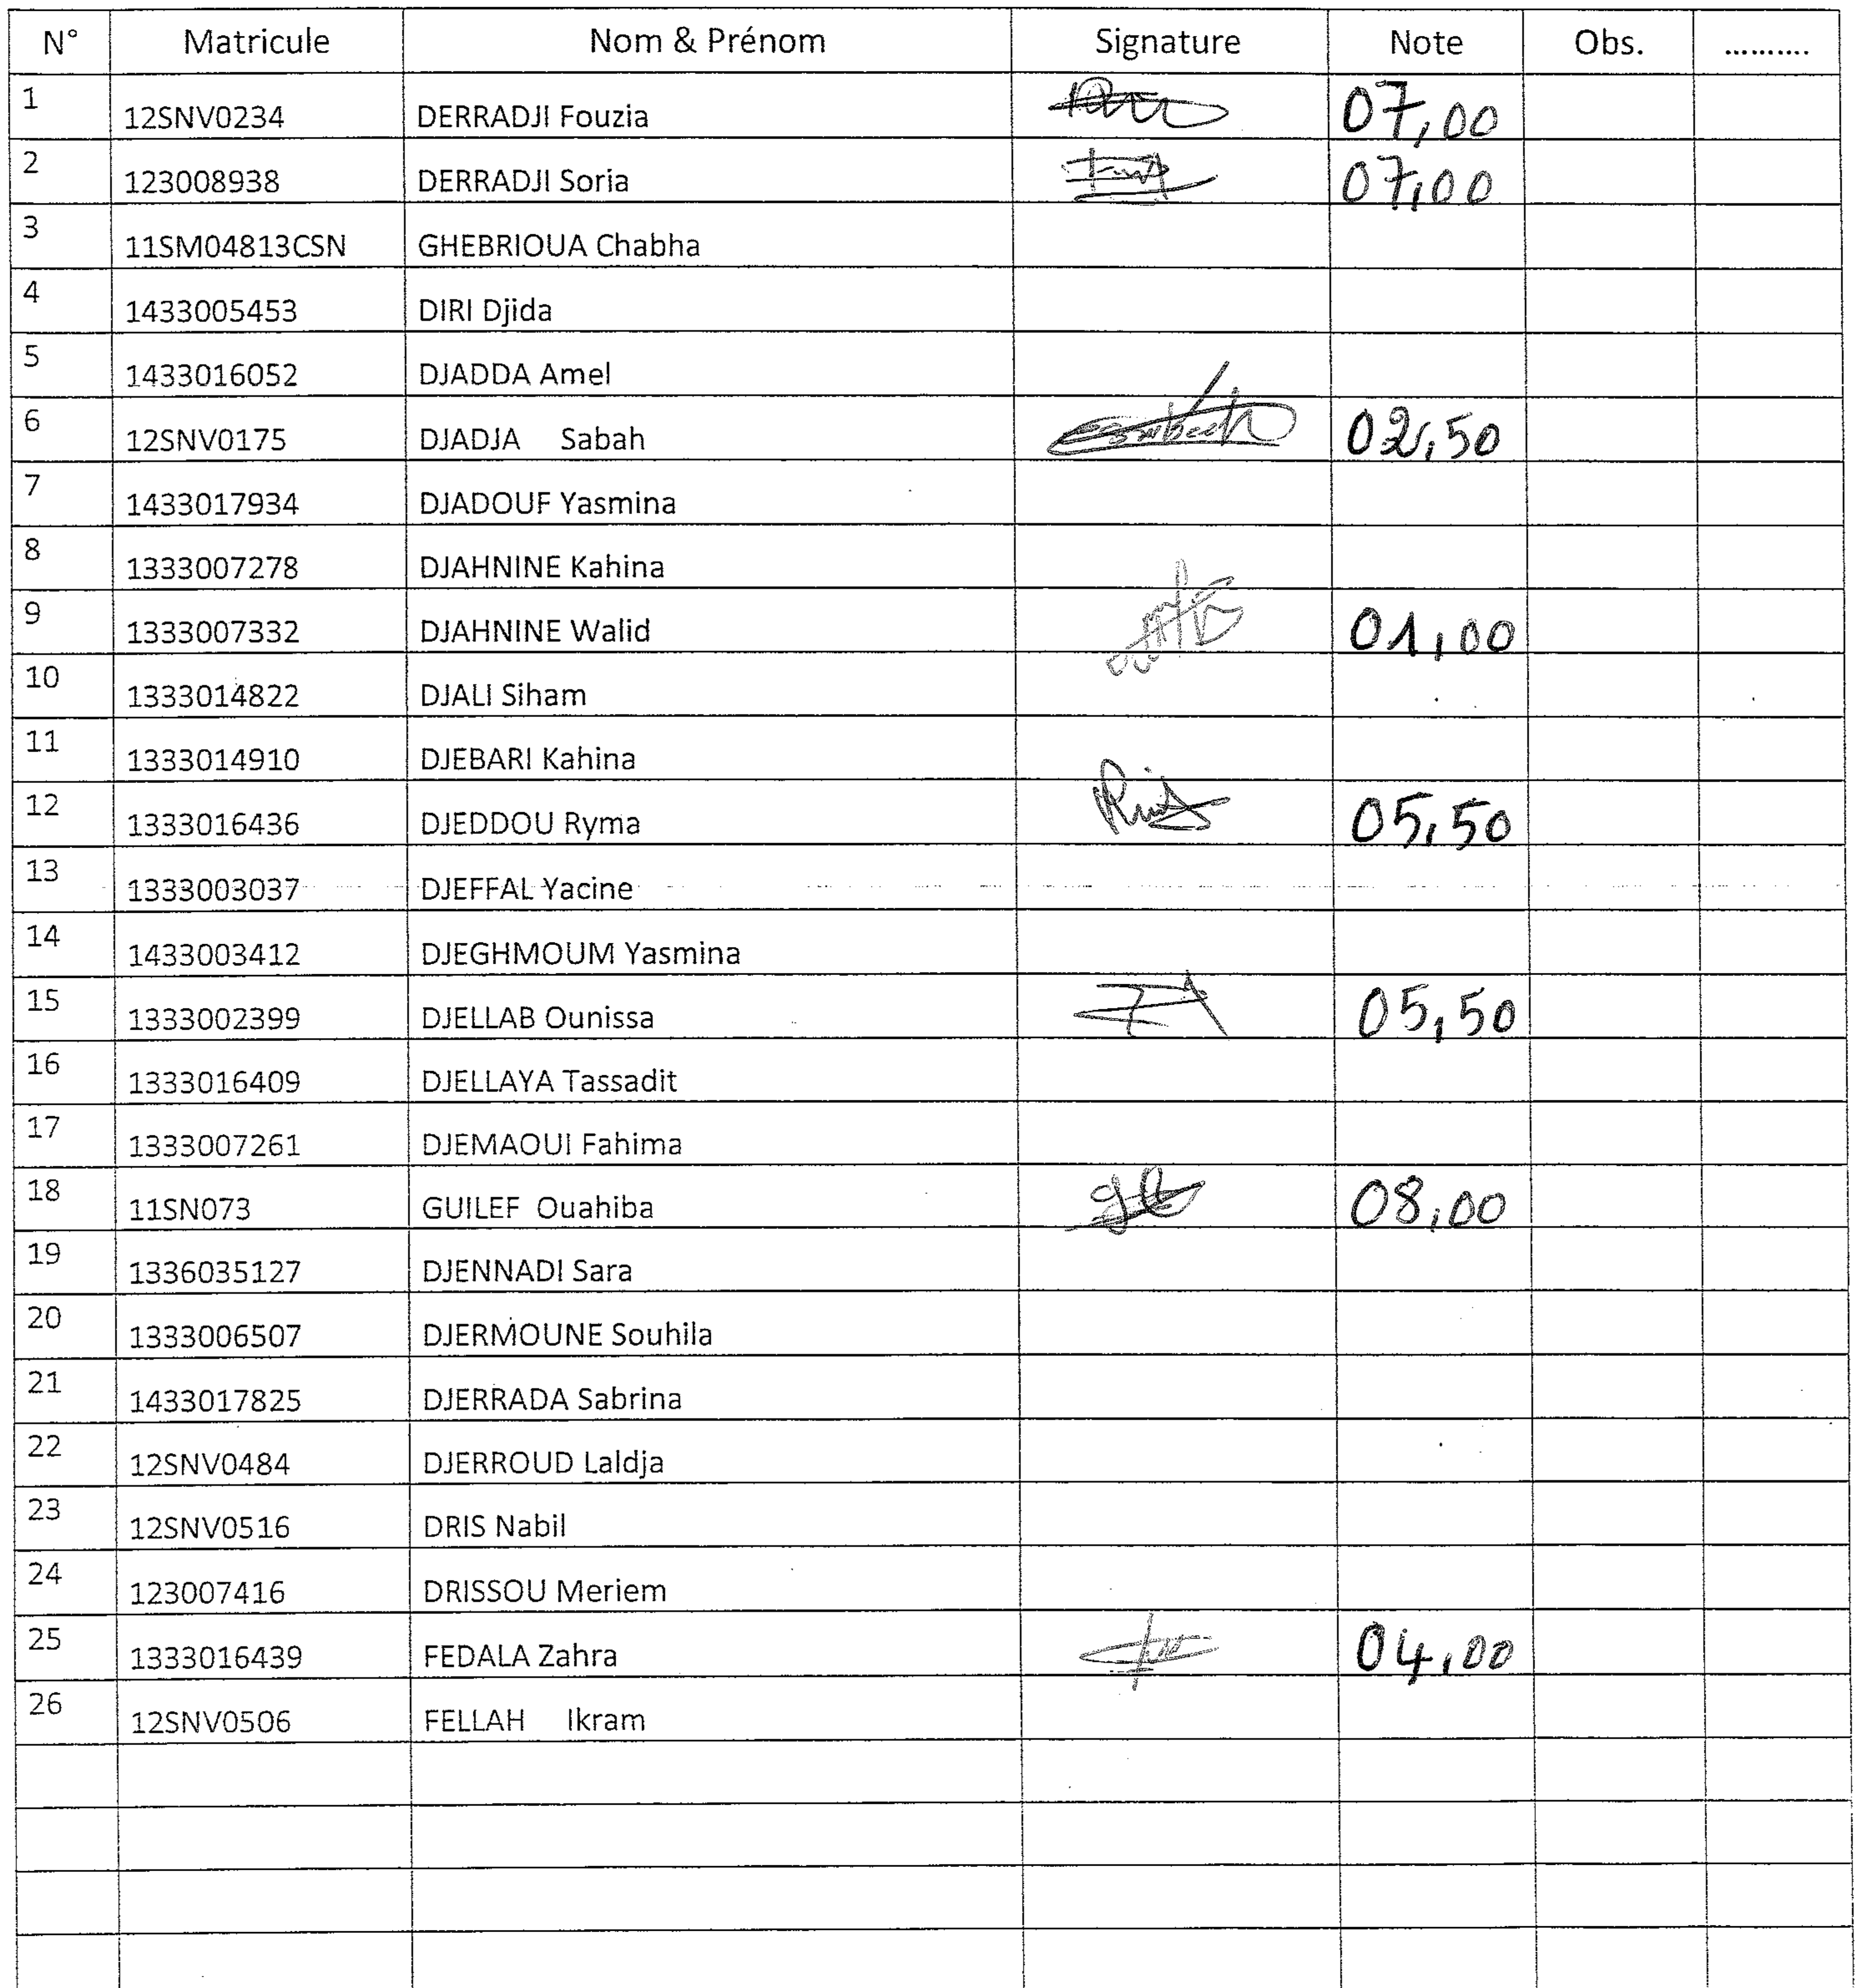 N° Matricule Nom & Prénom Signature Note Obs. ..........
1 12SNV0234 DERRADJI Fouzia 07,00
2 123008938 DERRADJI Soria 07,00
3 11SM04813CSN GHEBRIOUA Chabha
4 1433005453 DIRI Djida
5 1433016052 DJADDA Amel
6 12SNV0175 DJADJA Sabah 02,50
7 1433017934 DJADOUF Yasmina
8 1333007278 DJAHNINE Kahina
9 1333007332 DJAHNINE Walid 01,00
10 1333014822 DJALI Siham
11 1333014910 DJEBARI Kahina
12 1333016436 DJEDDOU Ryma 05,50
13 1333003037 DJEFFAL Yacine
14 1433003412 DJEGHMOUM Yasmina
15 1333002399 DJELLAB Ounissa 05,50
16 1333016409 DJELLAYA Tassadit
17 1333007261 DJEMAOUI Fahima
18 11SN073 GUILEF Ouahiba 08,00
19 1336035127 DJENNADI Sara
20 1333006507 DJERMOUNE Souhila
21 1433017825 DJERRADA Sabrina
22 12SNV0484 DJERROUD Laldja
23 12SNV0516 DRIS Nabil
24 123007416 DRISSOU Meriem
25 1333016439 FEDALA Zahra 04,00
26 12SNV0506 FELLAH Ikram